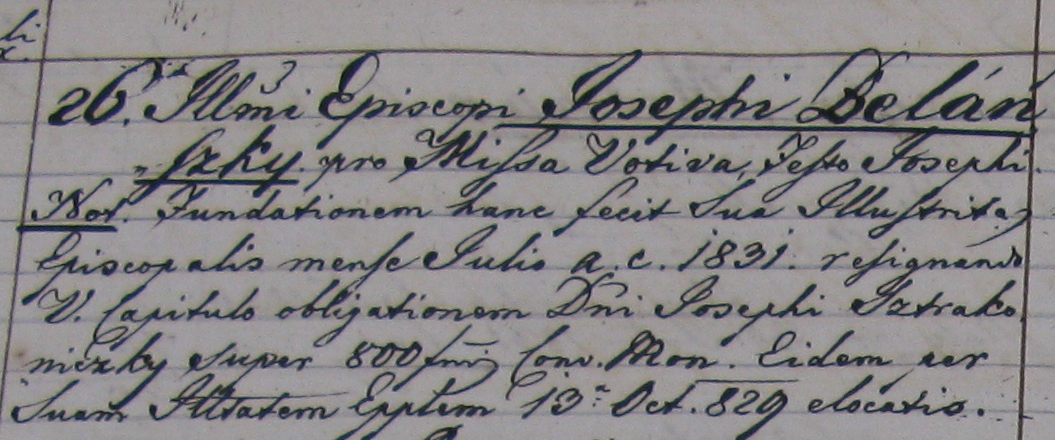 26. Illmi Episcopi Josephi Belán
„szky. pro Missa Votiva, Festo Josephi.
Not. Fundationem hanc fecit Sua Illustritas
Episcopalis mense Julio a. c. 1831. resignando
V. Capitulo obligationem Dni Josephi Sztrako
niczky super 800 fnis Conv. Mon. Eidem per
Suam Illtatem Epplem 13a Oct. 829 elocatis.